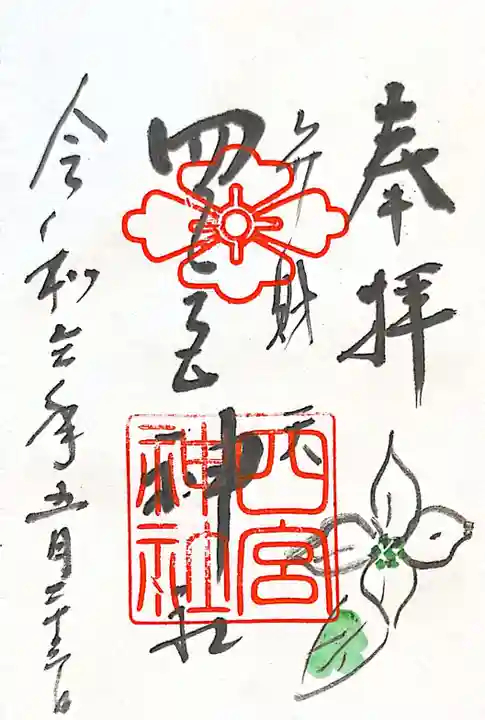 奉拝
弁財天
四之宮神社
四宮神社
令和六年五月二十三日